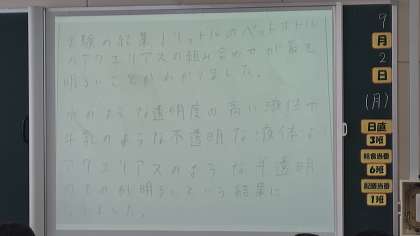 実験の結果1リットルのペットボトル
とアクエリアスの組み合わせが最も
明るいことがわかりました。
水のような透明度の高い液体や
牛乳のような不透明な液体より
アクエリアスのような半透明
のものが明るいという結果に
なりました。
9
月
2
日
(月)
日直
3班
給食当番
6班
配膳当番
1班